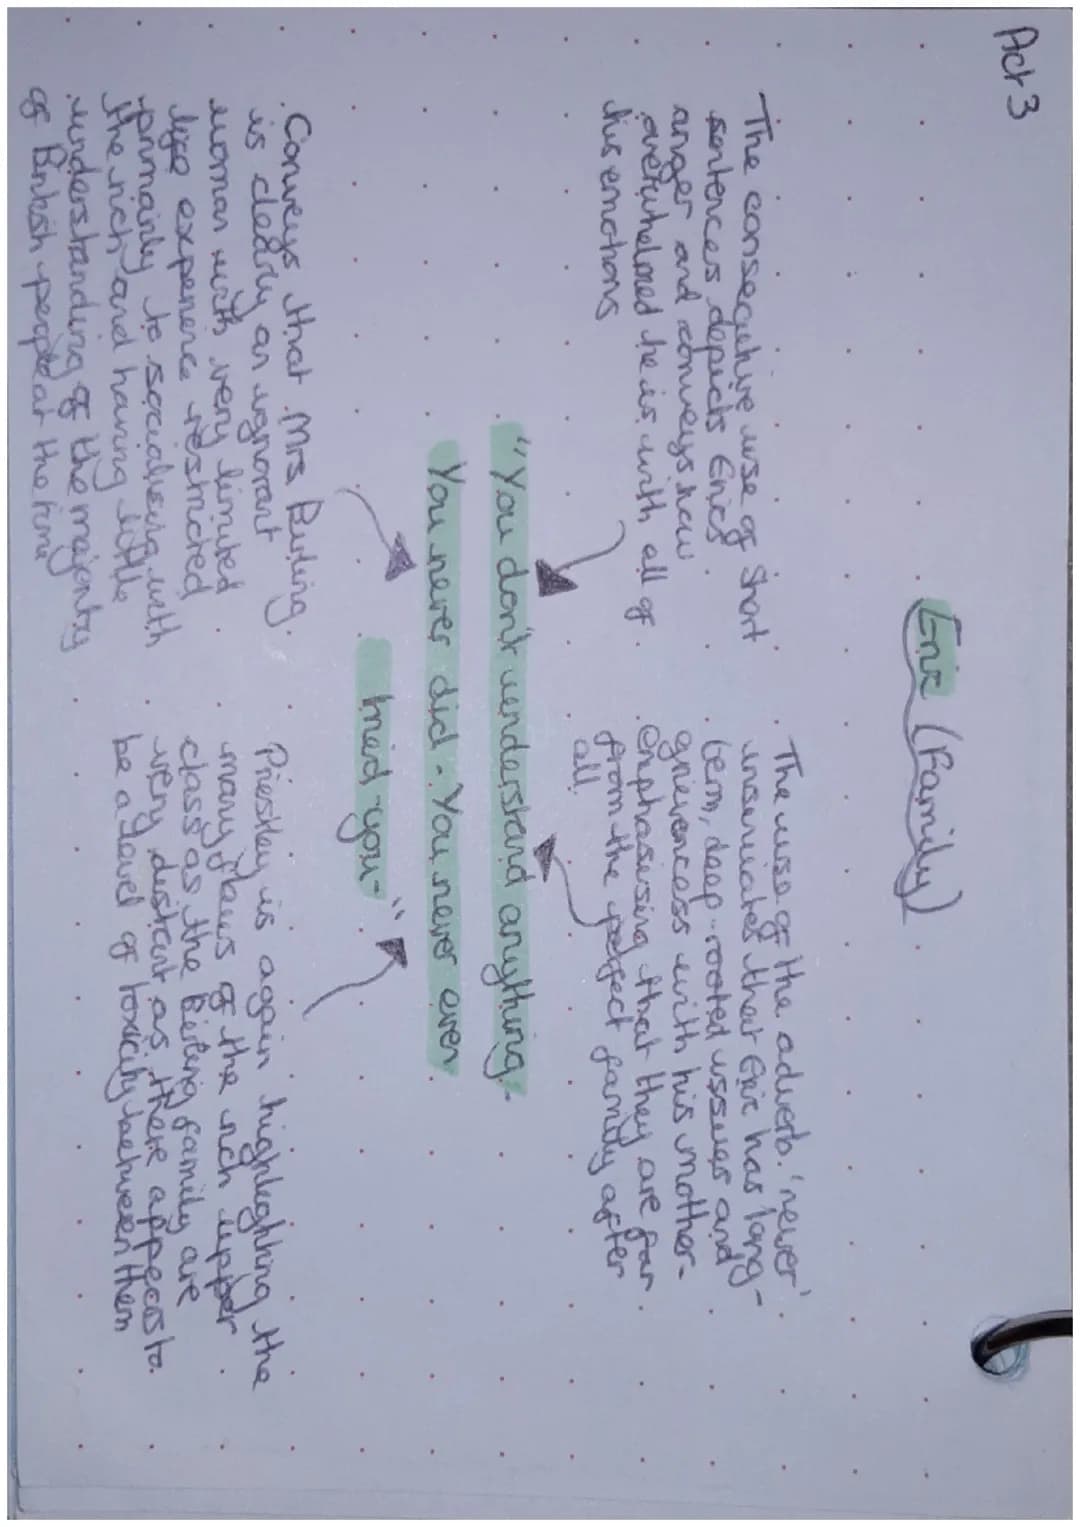 Act 3
Eric (Family)
The consecutive use of short
sentences depicts Erics
anger and conveys how
overwhelmed he is with all of
his emotions
The use of the adverb 'never'
insinuates that Eric has long-
term, deep-rooted issues and
grievences with his mother-
emphasising that they are far
from the perfect family after
all.
"You don't understand anything-
You never did - You never even
tried-you-"
Conveys that Mrs Birling
is clearly an ignorant
woman with very limited
life experience restricted
primarily to socialising with
the rich and having little
understanding of the majority
of British people at the time
Priestley is again highlighting the
many flaws of the rich upper
class as the Birling family are
very distant as there appears to
be a level of toxicity between them